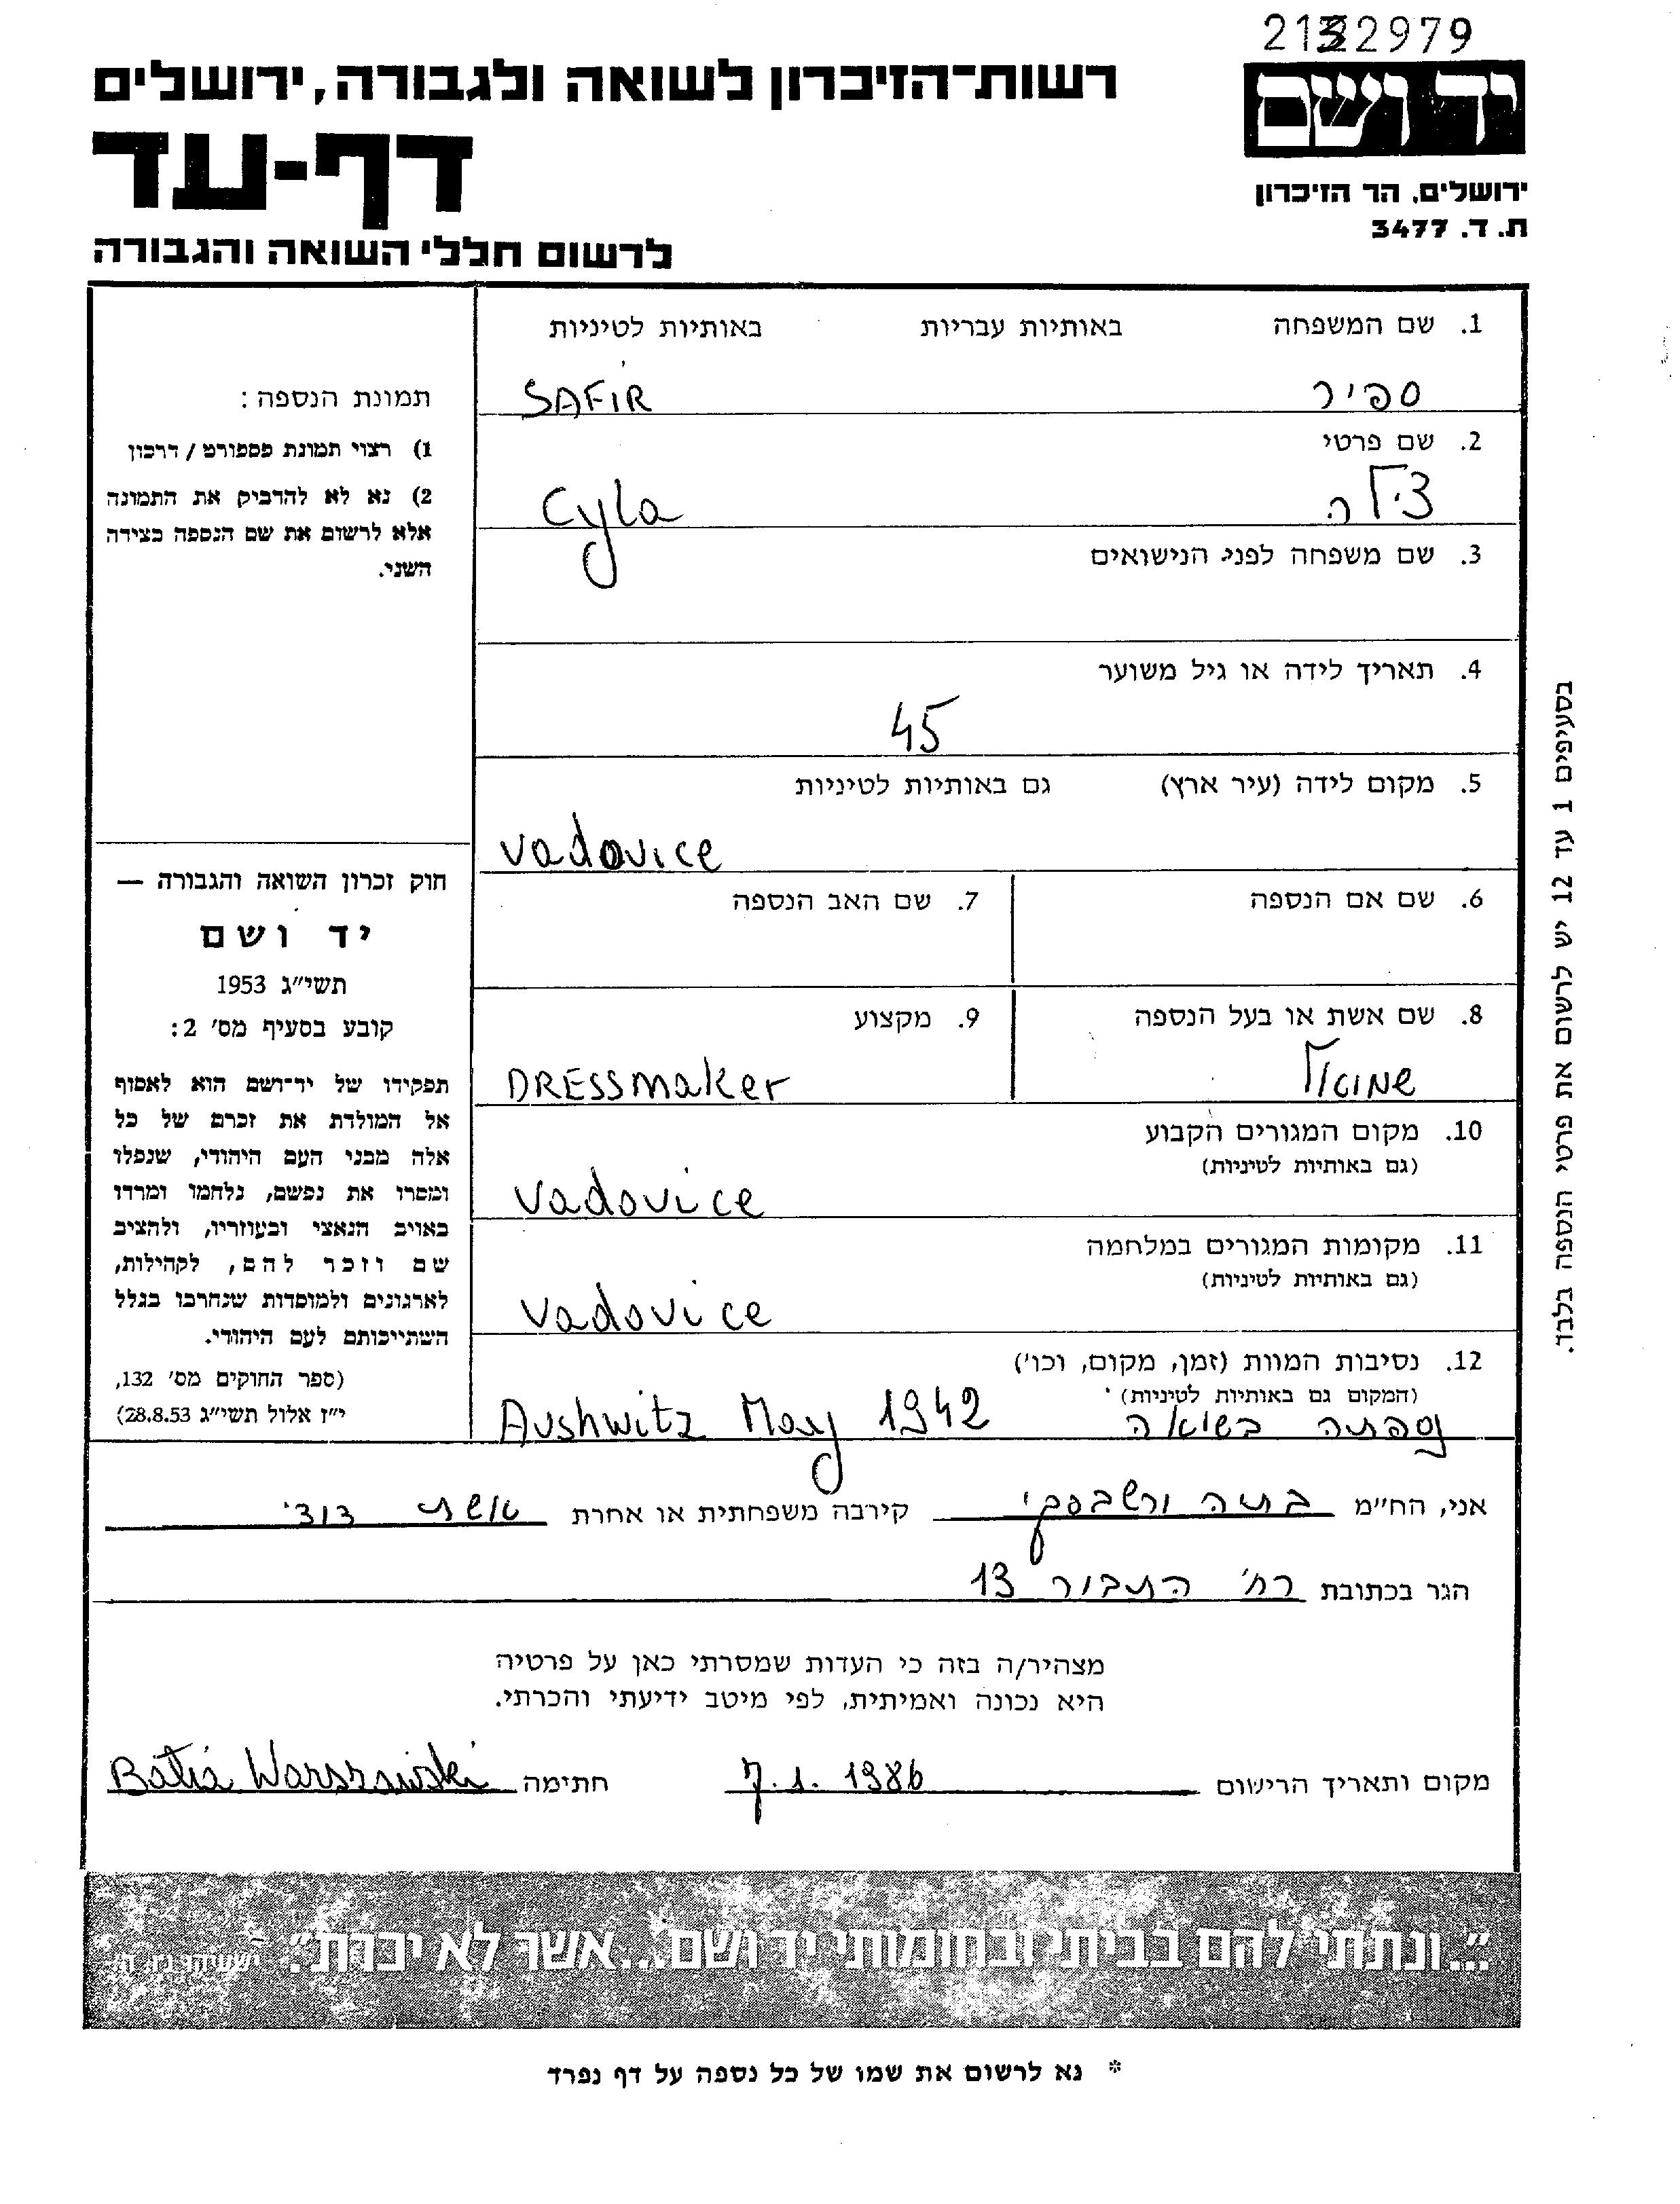 2132979
יד ושם
ירושלים, הר הזיכרון
ת. ד. 3477
רשות־הזיכרון לשואה ולגבורה, ירושלים
דף-עד
לרשום חללי השואה והגבורה
1. שם המשפחה באותיות עבריות באותיות לטיניות
ספיר SAFIR
2. שם פרטי
צילה Cyla
3. שם משפחה לפני הנישואים
4. תאריך לידה או גיל משוער
45
5. מקום לידה (עיר ארץ) גם באותיות לטיניות
Vadovice
6. שם אם הנספה 7. שם האב הנספה
8. שם אשת או בעל הנספה 9. מקצוע
שמואל DRESSmaker
10. מקום המגורים הקבוע
(גם באותיות לטיניות)
Vadovice
11. מקומות המגורים במלחמה
(גם באותיות לטיניות)
Vadovice
12. נסיבות המוות (זמן, מקום, וכו')
(המקום גם באותיות לטיניות)
נספתה בשואה Aushwitz May 1942
תמונת הנספה:
1) רצוי תמונת פספורט / דרכון
2) נא לא להדביק את התמונה
אלא לרשום את שם הנספה בצידה
השני.
חוק זכרון השואה והגבורה —
יד ושם
תשי"ג 1953
קובע בסעיף מס' 2:
תפקידו של יד־ושם הוא לאסוף
אל המולדת את זכרם של כל
אלה מבני העם היהודי, שנפלו
ומסרו את נפשם, נלחמו ומרדו
באויב הנאצי ובעוזריו, ולהציב
שם וזכר להם, לקהילות,
לארגונים ולמוסדות שנחרבו בגלל
השתייכותם לעם היהודי.
(ספר החוקים מס' 132,
י"ז אלול תשי"ג 28.8.53)
בסעיפים 1 עד 12 יש לרשום את פרטי הנספה בלבד.
אני, הח"מ בתיה ורשבסקי קירבה משפחתית או אחרת אשת דודי
הגר בכתובת רח' התבור 13
מצהיר/ה בזה כי העדות שמסרתי כאן על פרטיה
היא נכונה ואמיתית, לפי מיטב ידיעתי והכרתי.
מקום ותאריך הרישום 7.1.1986 חתימה Batia Warszawski
"...ונתתי להם בביתי ובחומותי יד ושם...אשר לא יכרת". ישעיהו נו, ה'
* נא לרשום את שמו של כל נספה על דף נפרד